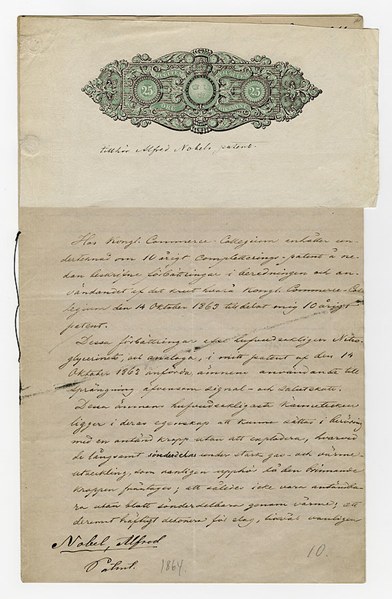 25 25
tillhör Alfred Nobels patent.
Hos Kongl. Commerce-Collegium anhåller un-
dertecknad om 10 årigt Completterings-patent å ne-
dan beskrifne förbättringar i beredningen och an-
vändandet af det krut hvarå Kongl. Commerce-Col-
legium den 14 Oktober 1863 tilldelat mig 10 årigt
patent.
Dessa förbättringar afse hufvudsakligen Nitro-
glycerinets, en analoga, i mitt patent af den 14
Oktober 1863 anförda ämnens användande till
sprängning äfvensom signal- och salutskott.
Dessa ämnens hufvudsakligaste kännetecken
ligger i deras egenskap att kunna sättas i beröring
med en antänd kropp utan att explodera, hvarvid
de långsamt sönderdelas under stark gas- och värme-
utveckling, som vanligen upphör så den brinnande
kroppen fråntages; att således icke vara antändba-
ra utan blott sönderdelbara genom värme; att
deremot häftigt detonera för slag, hvarvid vanligen
Nobel, Alfred
Patent. 1864
10.